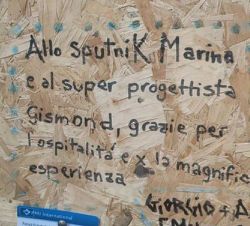 Allo sputniK Marina
e al super progettista
Gismond, grazie per
l'ospitalità e x la magnific
esperienza
GIORGIO + A